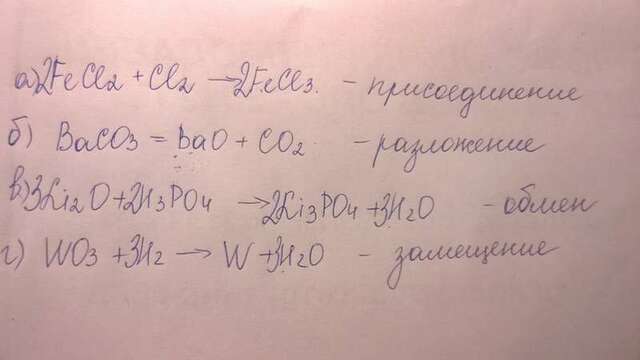 а) 2FeCl2 + Cl2 → 2FeCl3. - присоединение
б) BaCO3 = BaO + CO2 - разложение
в) 3Li2O + 2H3PO4 → 2Li3PO4 + 3H2O - обмен
г) WO3 + 3H2 → W + 3H2O - замещение